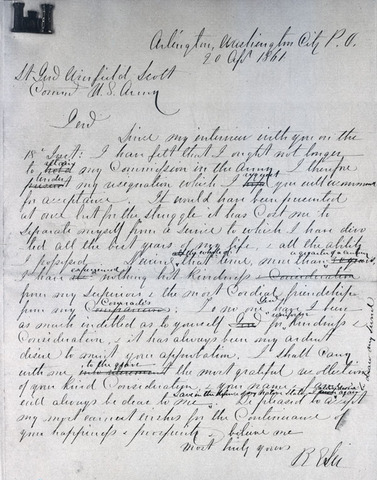 Arlington, Washington City P.O.
20 Apl 1861
Lt Genl Winfield Scott
Commd U.S. Army
Genl
Since my interview with you on the
18th Inst: I have felt that I ought not longer
retain
to my Commission in the Army. I therefore
tender
my resignation which I you will recommend
for acceptance. It would have been presented
at once but for the struggle it has cost me to
separate myself from a service to which I have devo
ted all the best years of my life, & all the ability
I possessed. During that time, more than
experienced
I have nothing but kindness
from my superiors & the most cordial friendship
Comrades
from my To no one Genl have I been
as much indebted as to yourself for kindness &
Consideration, & it has always been my ardent
desire to merit your approbation. I shall carry
to the grave
with me the most grateful recollections
of your kind Consideration, & your name &
fame
Save in the defence of my native State
will always be dear to me Be pleased to accept
my most earnest wishes for the Continuance of
your happiness & prosperity & believe me
Most truly yours
R E Lee